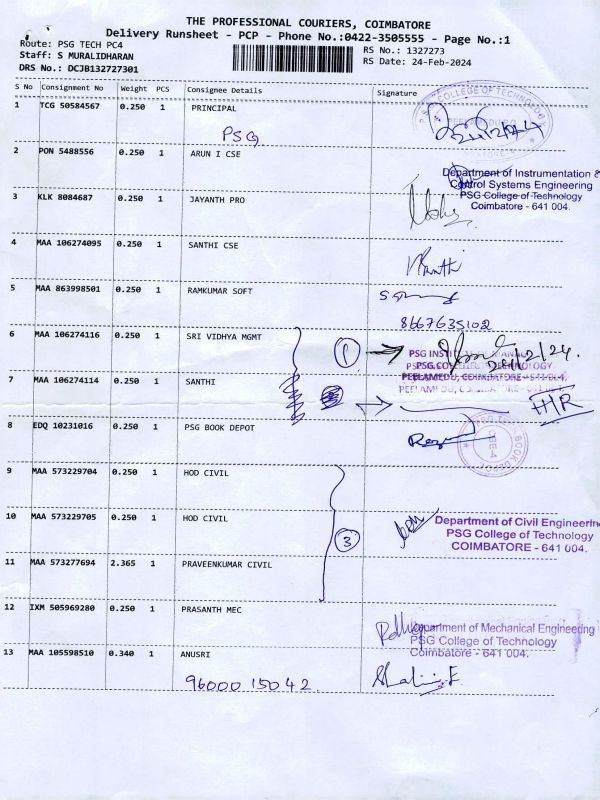 THE PROFESSIONAL COURIERS, COIMBATORE
Delivery Runsheet - PCP - Phone No.:0422-3505555 - Page No.:1
Route: PSG TECH PC4
RS No.: 1327273
Staff: S MURALIDHARAN
RS Date: 24-Feb-2024
DRS No.: DCJB132727301
S No Consignment No Weight PCS Consignee Details Signature
1 TCG 50584567 0.250 1 PRINCIPAL
PSG
24/2/24
2 PON 5488556 0.250 1 ARUN I CSE
Department of Instrumentation &
Control Systems Engineering
PSG College of Technology
Coimbatore - 641 004.
3 KLK 8084687 0.250 1 JAYANTH PRO
4 MAA 106274095 0.250 1 SANTHI CSE
5 MAA 863998501 0.250 1 RAMKUMAR SOFT
8667635102
6 MAA 106274116 0.250 1 SRI VIDHYA MGMT
1
24/2/24.
PSG COLLEGE OF TECHNOLOGY
7 MAA 106274114 0.250 1 SANTHI
PEELAMEDU, COIMBATORE - 641 004.
HR
8 EDQ 10231016 0.250 1 PSG BOOK DEPOT
9 MAA 573229704 0.250 1 HOD CIVIL
10 MAA 573229705 0.250 1 HOD CIVIL
3
Department of Civil Engineerin
PSG College of Technology
COIMBATORE - 641 004.
11 MAA 573277694 2.365 1 PRAVEENKUMAR CIVIL
12 IXM 505969280 0.250 1 PRASANTH MEC
Department of Mechanical Engineering
PSG College of Technology
Coimbatore - 641 004.
13 MAA 105598510 0.340 1 ANUSRI
96000 15042.